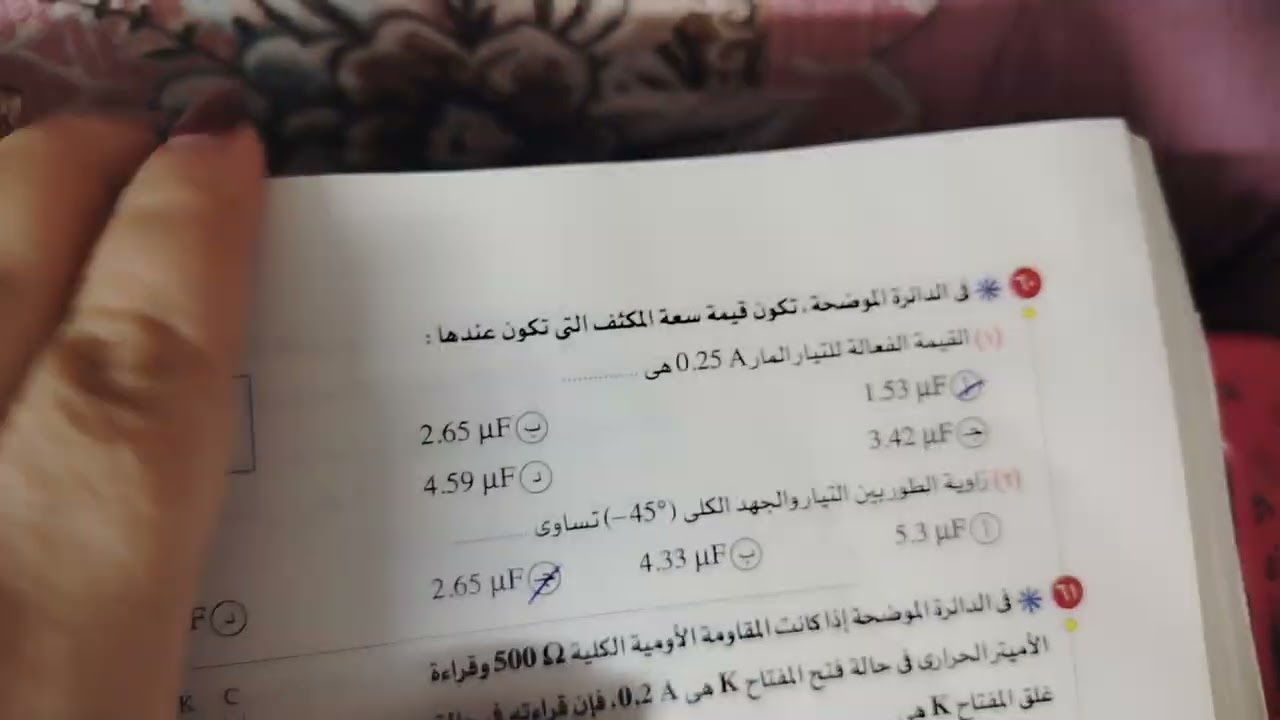 ٦٠ * فى الدائرة الموضحة، تكون قيمة سعة المكثف التى تكون عندها :
(١) القيمة الفعالة للتيار المار 0.25 A هى ............
أ 1.53 µF
ب 2.65 µF
جـ 3.42 µF
د 4.59 µF
(٢) زاوية الطور بين التيار والجهد الكلى (−45°) تساوى ............
أ 5.3 µF
ب 4.33 µF
جـ 2.65 µF
د F
٦١ * فى الدائرة الموضحة إذا كانت المقاومة الأومية الكلية 500 Ω وقراءة
الأميتر الحرارى فى حالة فتح المفتاح K هى 0.2 A، فإن قراءته فى حالة
غلق المفتاح K هى
K C